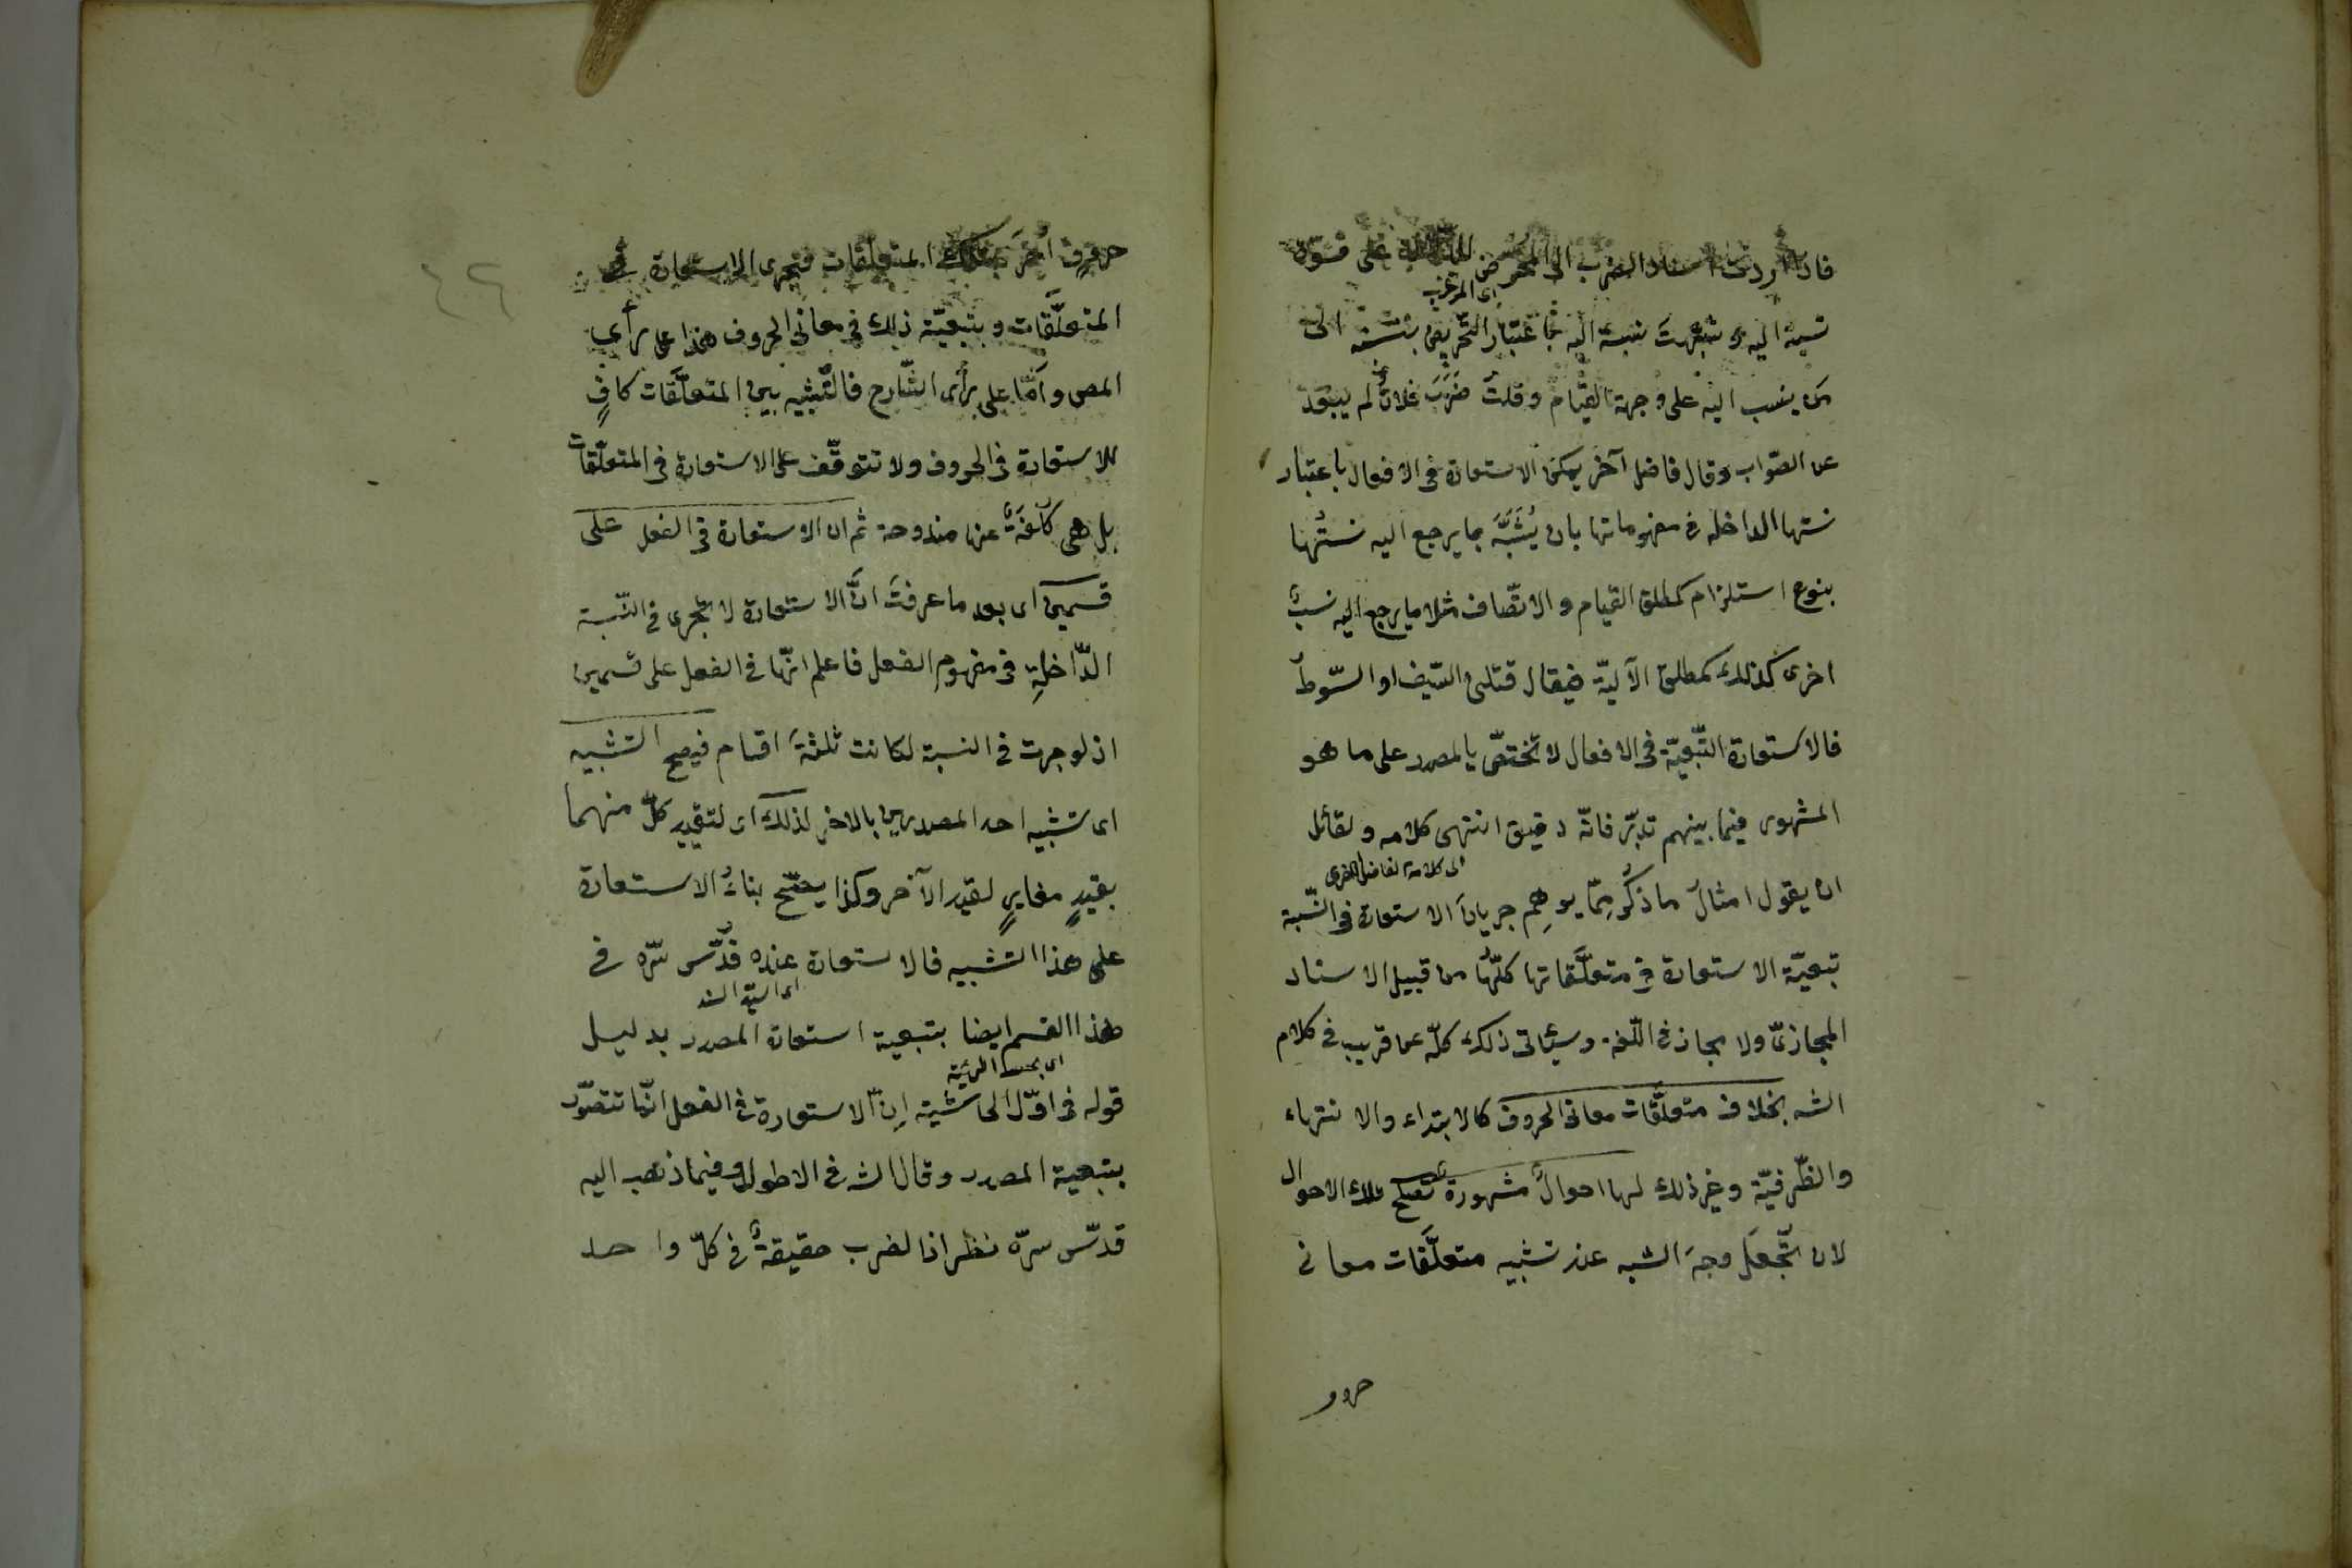 فاذا اردت اسناد الضرب الى المحرض للدلالة على قوّة
اى المرغب
نسبته اليه وشبهت نسبته اليه باعتبار التحريض بنسبته الى
من ينسب اليه على وجهة القيام وقلتَ ضَرَبَ فلانٌ لم يبعد
عن الصّواب وقال فاضل آخر يمكن الاستعارة فى الافعال باعتبار
نسبتها الداخلة فى مفهوماتها بان يُشَبَّهَ بما يرجع اليه نسبتُها
بنوع استلزام كمطلق القيام والاتّصاف مثلا ما يرجع اليه نسبةٌ
اخرى كذلك كمطلق الآليّة فيقال قتلنى السّيف او السّوط
فالاستعارة التّبعيّة فى الافعال لا تختصّ بالمصدر على ما هو
المشهور فيما بينهم تدبّر فانّه دقيق انتهى كلامه ولقائل
اى كلام الفاضل الاخرى
ان يقول امثالُ ما ذُكر ممّا يوهِم جريانَ الاستعارة فى النّسبة
تبعيّة الاستعارة فى متعلَّقاتها كلّها من قبيل الاسناد
المجازىّ ولا مجاز فى اللّغة وسيأتى ذلك كلّه عن قريب فى كلام
الشه بخلاف متعلَّقات معانى الحروف كالابتداء والانتهاء
والظّرفيّة وغير ذلك لها احوالٌ مشهورة تصلح تلك الاحوال
لان تُجعَل وجهَ الشبه عند تشبيه متعلَّقات معانى
حرو
٤٢
حروف اُخَرَ بتلك المتعلّقات فتجرى الاستعارة فى
المتعلَّقات وبتبعيّة ذلك فى معانى الحروف هذا على رأى
المص وأمّا على رأى الشّارح فالتّشبيه بين المتعلَّقات كافٍ
للاستعارة فى الحروف ولا تتوقّف على الاستعارة فى المتعلّقات
بل هى كُلفةٌ عنها مندوحة ثم ان الاستعارة فى الفعل على
قسمين اى بعد ما عرفتَ انَّ الاستعارة لا تجرى فى النّسبة
الدّاخلةِ فى مفهوم الفعل فاعلم انّها فى الفعل على قسمين
اذ لو جرت فى النسبة لكانت ثلثةَ اقسام فيصح التشبيه
اى تشبيه احد المصدرين بالاخر لذلك اى لتقييد كلّ منهما
بقيدٍ مغايرٍ لقيد الآخر وكذا يصحّ بناءُ الاستعارة
على هذا التشبيه فالاستعارة عنده قُدّس سّره فى
اى السيد السند
هذا القسم ايضا بتبعية استعارة المصدر بدليل
قوله فى اوّل الحاشية إنّ الاستعارة فى الفعل انّما تتصوّر
بتبعية المصدر وقال الشه فى الاطول وفيما ذهب اليه
قدّس سرّه نظر اذ الضرب حقيقةٌ فى كلّ واحد